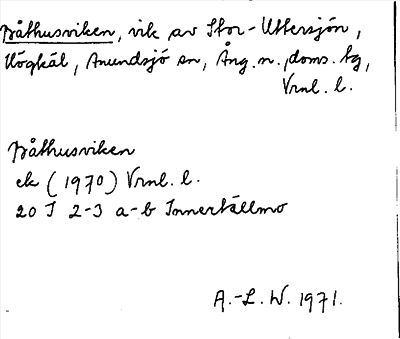 Båthusviken, vik av Stor-Uttersjön,
Högkål, Anundsjö sn, Ång. n. doms. tg,
Vrnl. l.
Båthusviken
ek (1970) Vrnl. l.
20 I 2-3 a-b Innertällmo
A.-L. W. 1971.